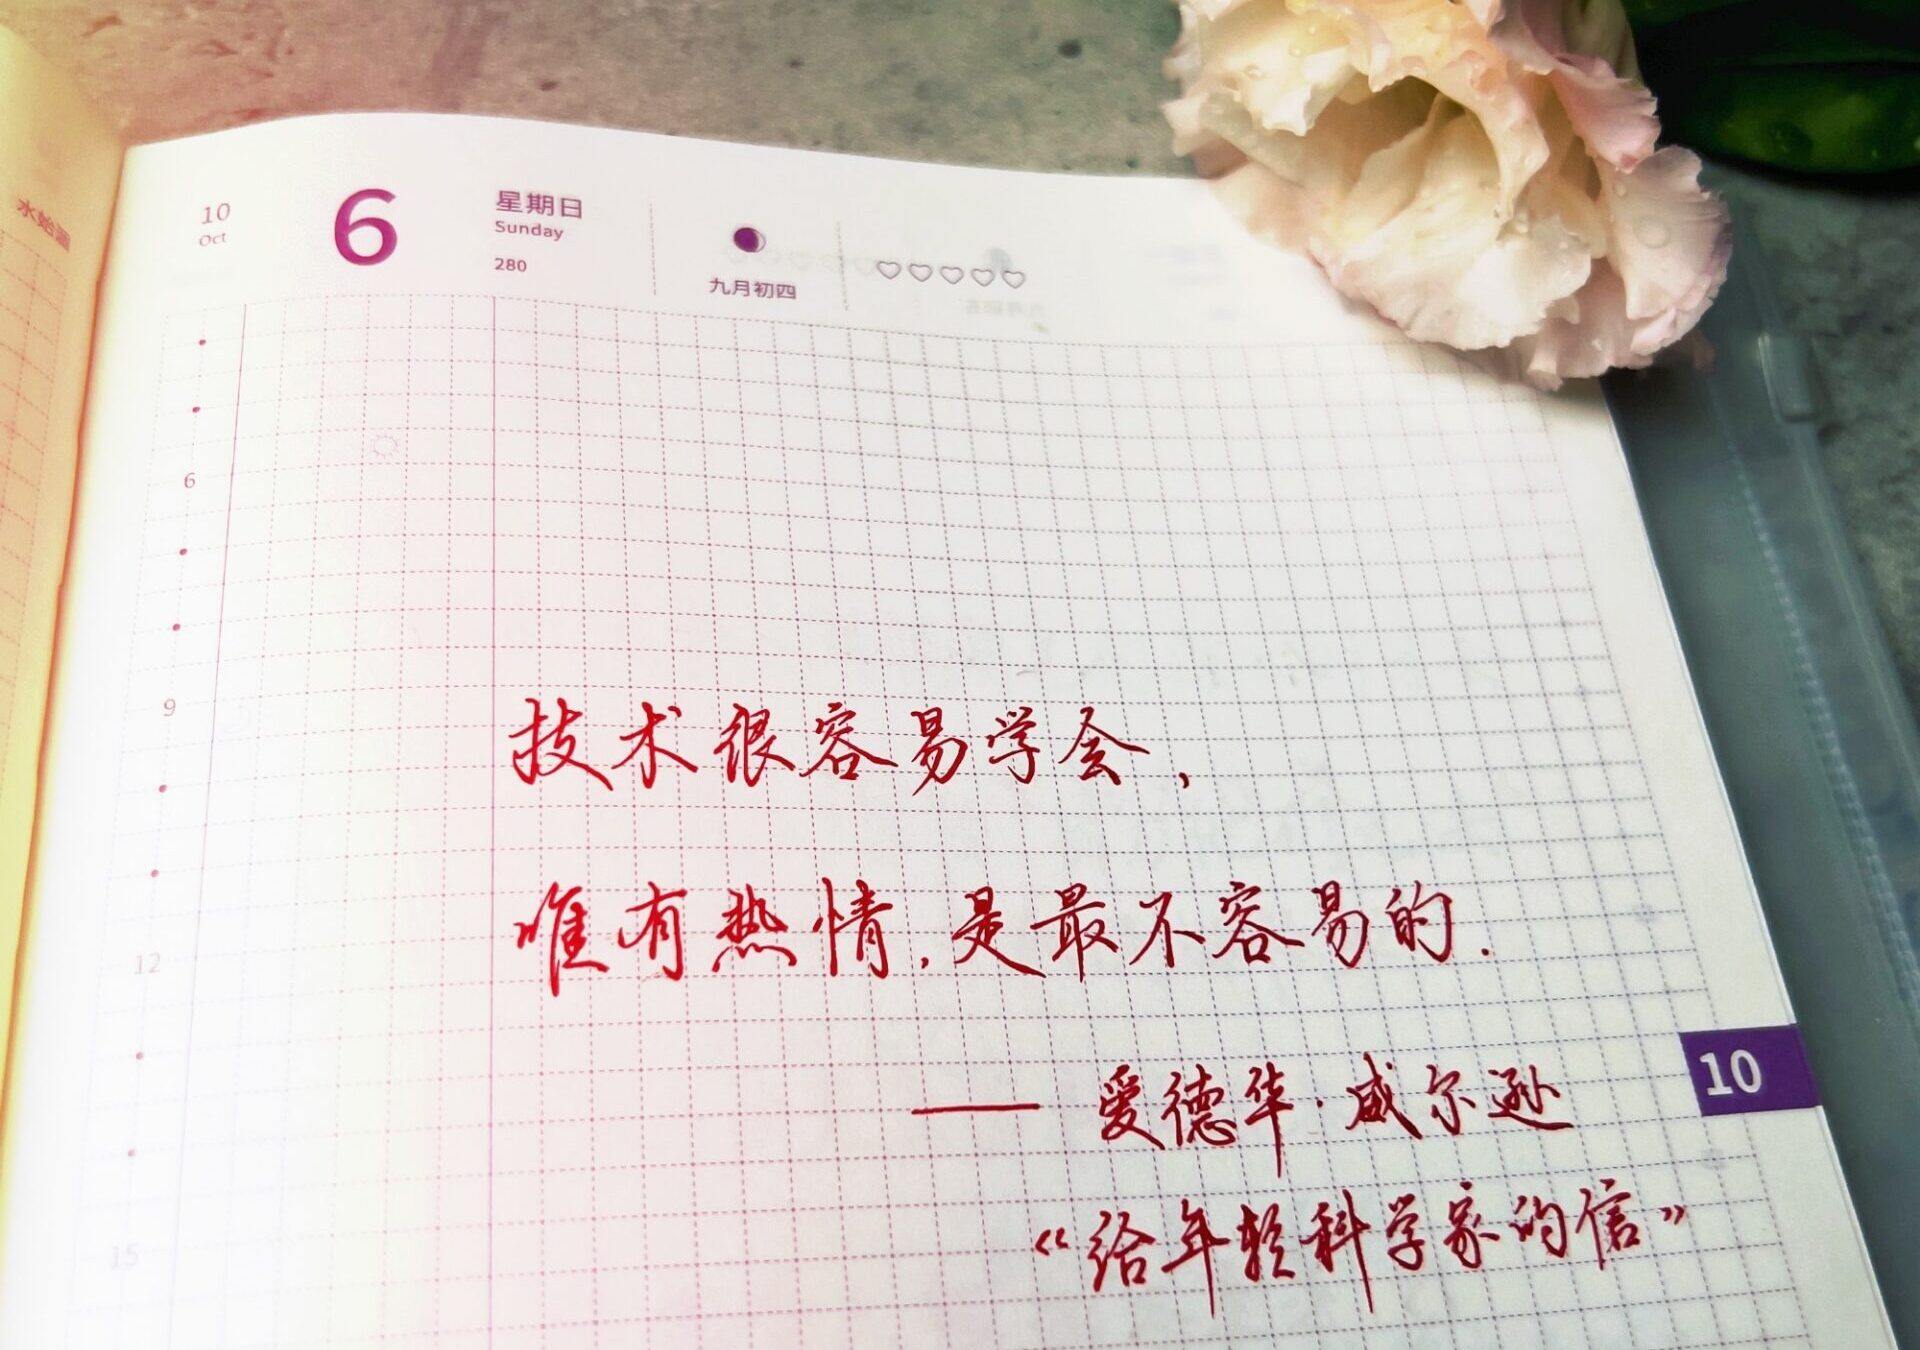 水始涸
10
Oct
6
星期日
Sunday
280
九月初四
6
9
12
15
技术很容易学会,
唯有热情,是最不容易的.
—— 爱德华·威尔逊
“给年轻科学家的信”
10